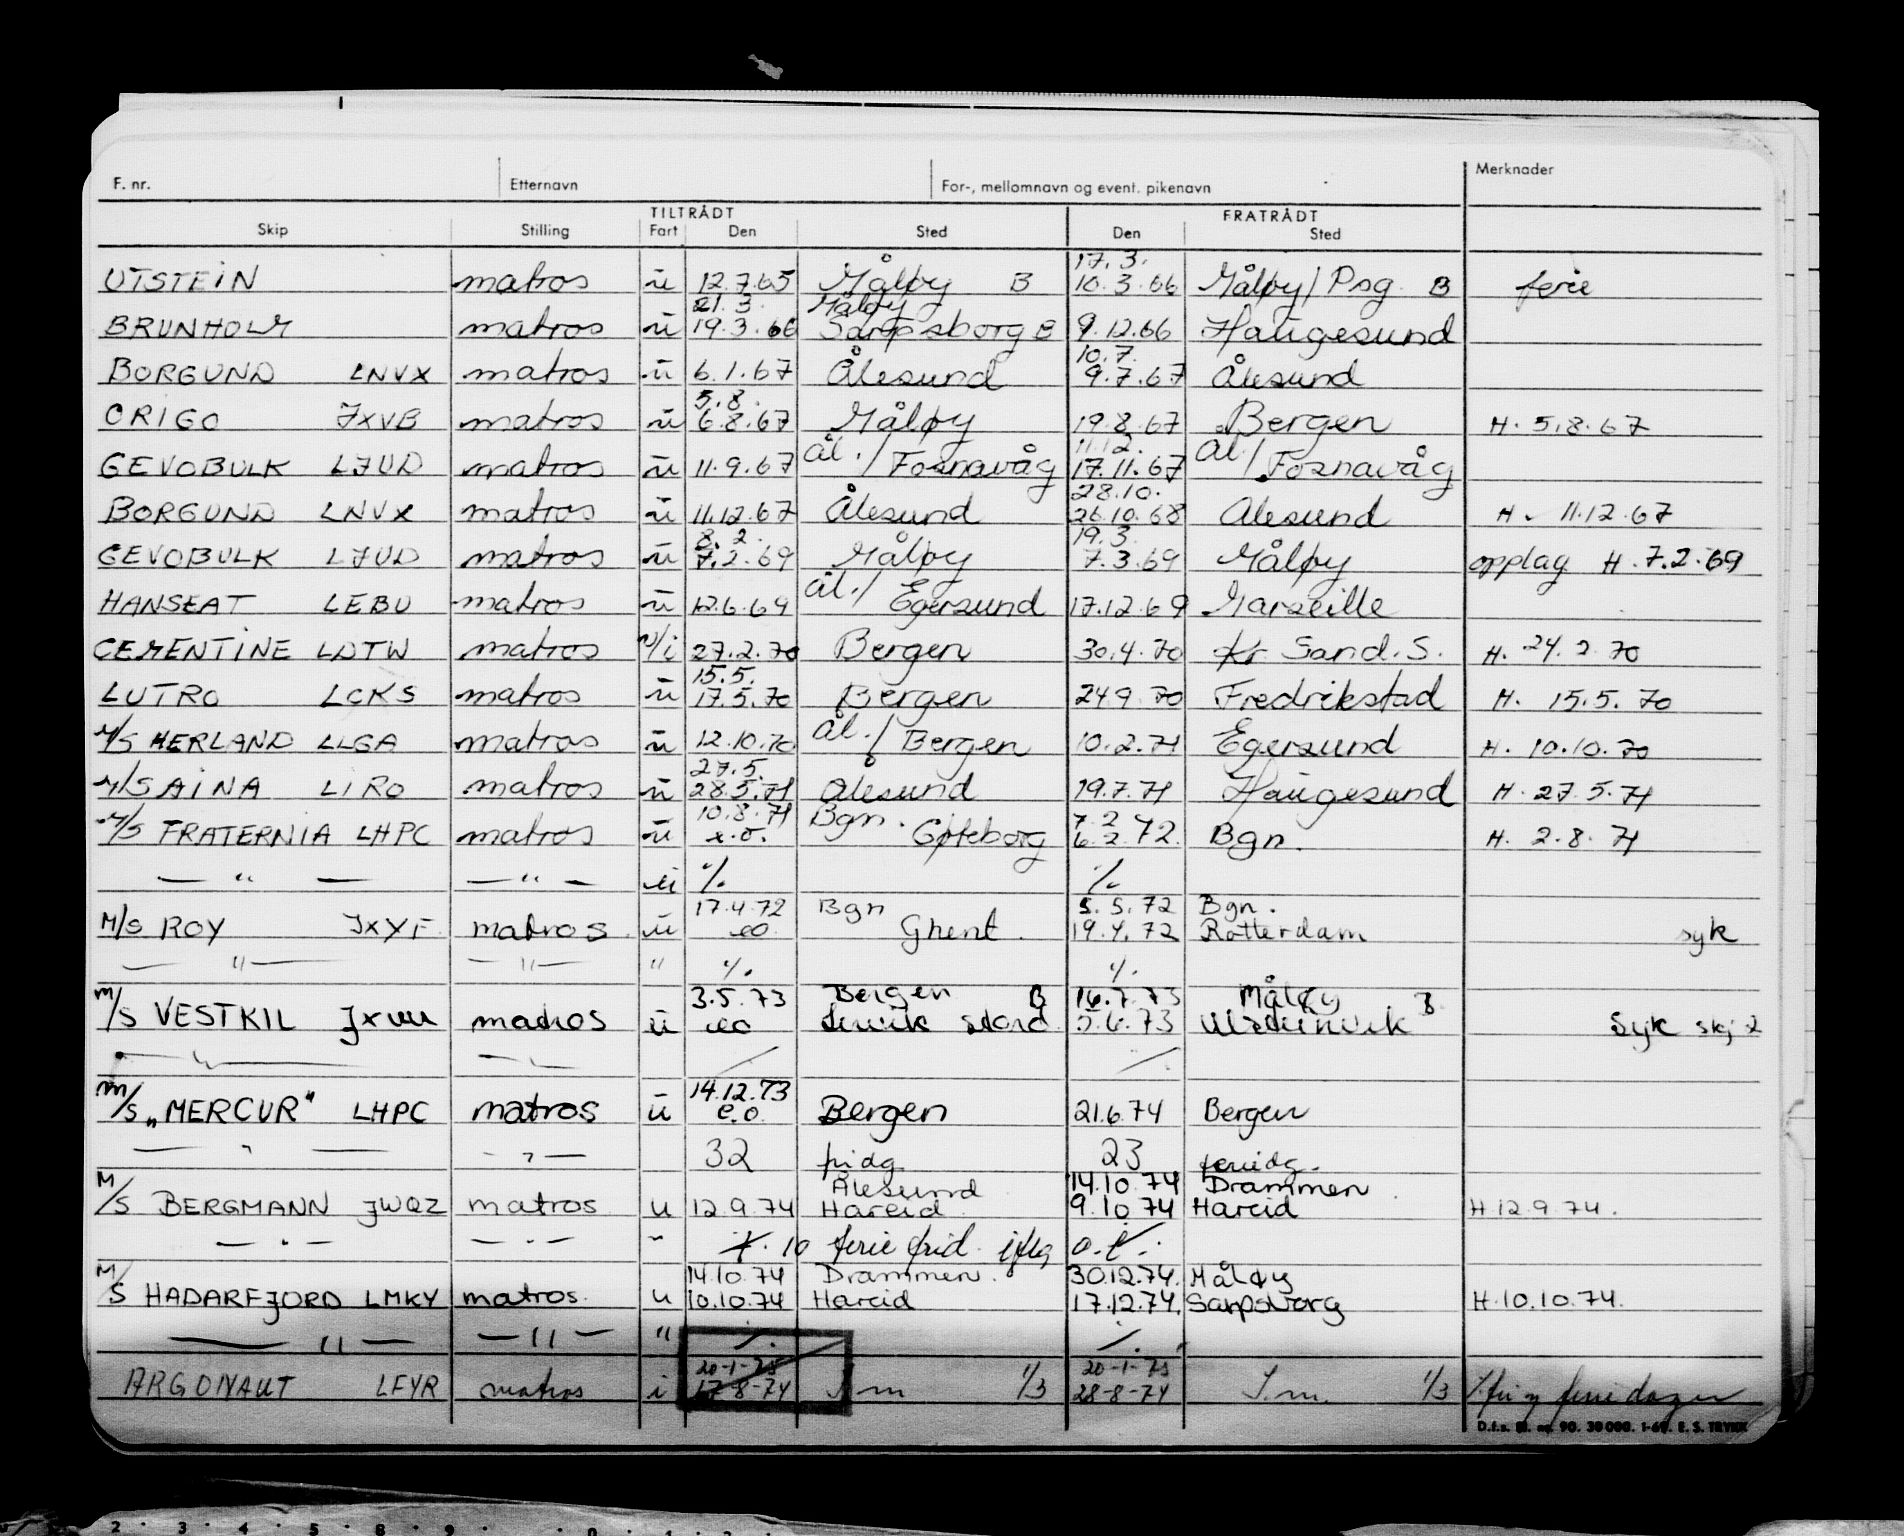 F. nr. Etternavn For-, mellomnavn og event. pikenavn Merknader
TILTRÅDT FRATRÅDT
Skip Stilling Fart Den Sted Den Sted
17.3.
UTSTEIN matros ū 12.7.65 Måløy B 10.3.66 Måløy/Psg. B ferie
21.3. Måløy
BRUNHOLM matros ū 19.3.66 Sarpsborg B 9.12.66 Haugesund
10.7.
BORGUND LNVX matros ū 6.1.67 Ålesund 9.7.67 Ålesund
5.8.
ORIGO JXVB matros ū 6.8.67 Måløy 19.8.67 Bergen H. 5.8.67
11.12.
GEVOBULK LJUD matros ū 11.9.67 Ål./Fosnavåg 17.11.67 Ål/Fosnavåg
28.10.
BORGUND LNVX matros ū 11.12.67 Ålesund 26.10.68 Ålesund H. 11.12.67
8.2. 19.3.
GEVOBULK LJUD matros ū 7.2.69 Måløy 7.3.69 Måløy opplag H. 7.2.69
HANSEAT LEBU matros ū 12.6.69 Ål./Egersund 17.12.69 Marseille
CEMENTINE LDTW matros ū/i 27.2.70 Bergen 30.4.70 Kr. Sand. S. H. 24.2.70
15.5.
LUTRO LCKS matros ū 17.5.70 Bergen 24.9.70 Fredrikstad H. 15.5.70
M/S HERLAND LLGA matros ū 12.10.70 Ål./Bergen 10.2.71 Egersund H. 10.10.70
27.5.
M/S AINA LIRO matros ū 28.5.71 Ålesund 19.7.71 Haugesund H. 27.5.71
10.8.71 Bgn. 7.2
M/S FRATERNIA LHPC matros ū e.o. Gøteborg 6.2.72. Bgn. H. 2.8.71
— " — — " — ū ./. ./.
17.4.72 Bgn 5.5.72 Bgn.
M/S ROY JXYF matros ū eo Ghent 19.4.72 Rotterdam syk
— " — — " — " ./. ./.
3.5.73 Bergen B 16.7.73 Måløy B.
M/S VESTKIL JXUU matros ū eo Leirvik Stord 5.6.73 Ulsteinvik Syk skj 2
14.12.73
M/S „MERCUR" LHPC matros ū e.o. Bergen 21.6.74 Bergen
— " — — " — 32 fridg 23 feriedg.
Ålesund 14.10.74 Drammen
M/S BERGMANN JWQZ matros u 12.9.74 Hareid 9.10.74 Hareid H. 12.9.74.
— " — — " — " ./. 10 ferie frid. iflg o.l.
14.10.74 Drammen. 30.12.74. Måløy
M/S HADARFJORD LMKY matros. u 10.10.74 Hareid 17.12.74. Sarpsborg H. 10.10.74.
— " — — " — " ./. ./.
20-1-75 20-1-75
ARGONAUT LFYR matros i 17-8-74 S.m 1/3 28-8-74 S.m. 1/3 ./. fri og feriedager
D.f.s. Bl. nr. 90. 30 000. 1-69. E. S. TRYKK